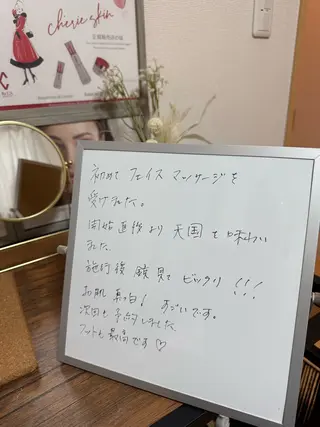 Chérie skin
正規販売店の証
初めて フェイス マッサージを
受けました。
開始直後より 天国を味わい
ました。
施行後 鏡見て ビックリ!!!
お肌 真っ白! すごいです。
次回も 予約しました。
フットも 最高です♡